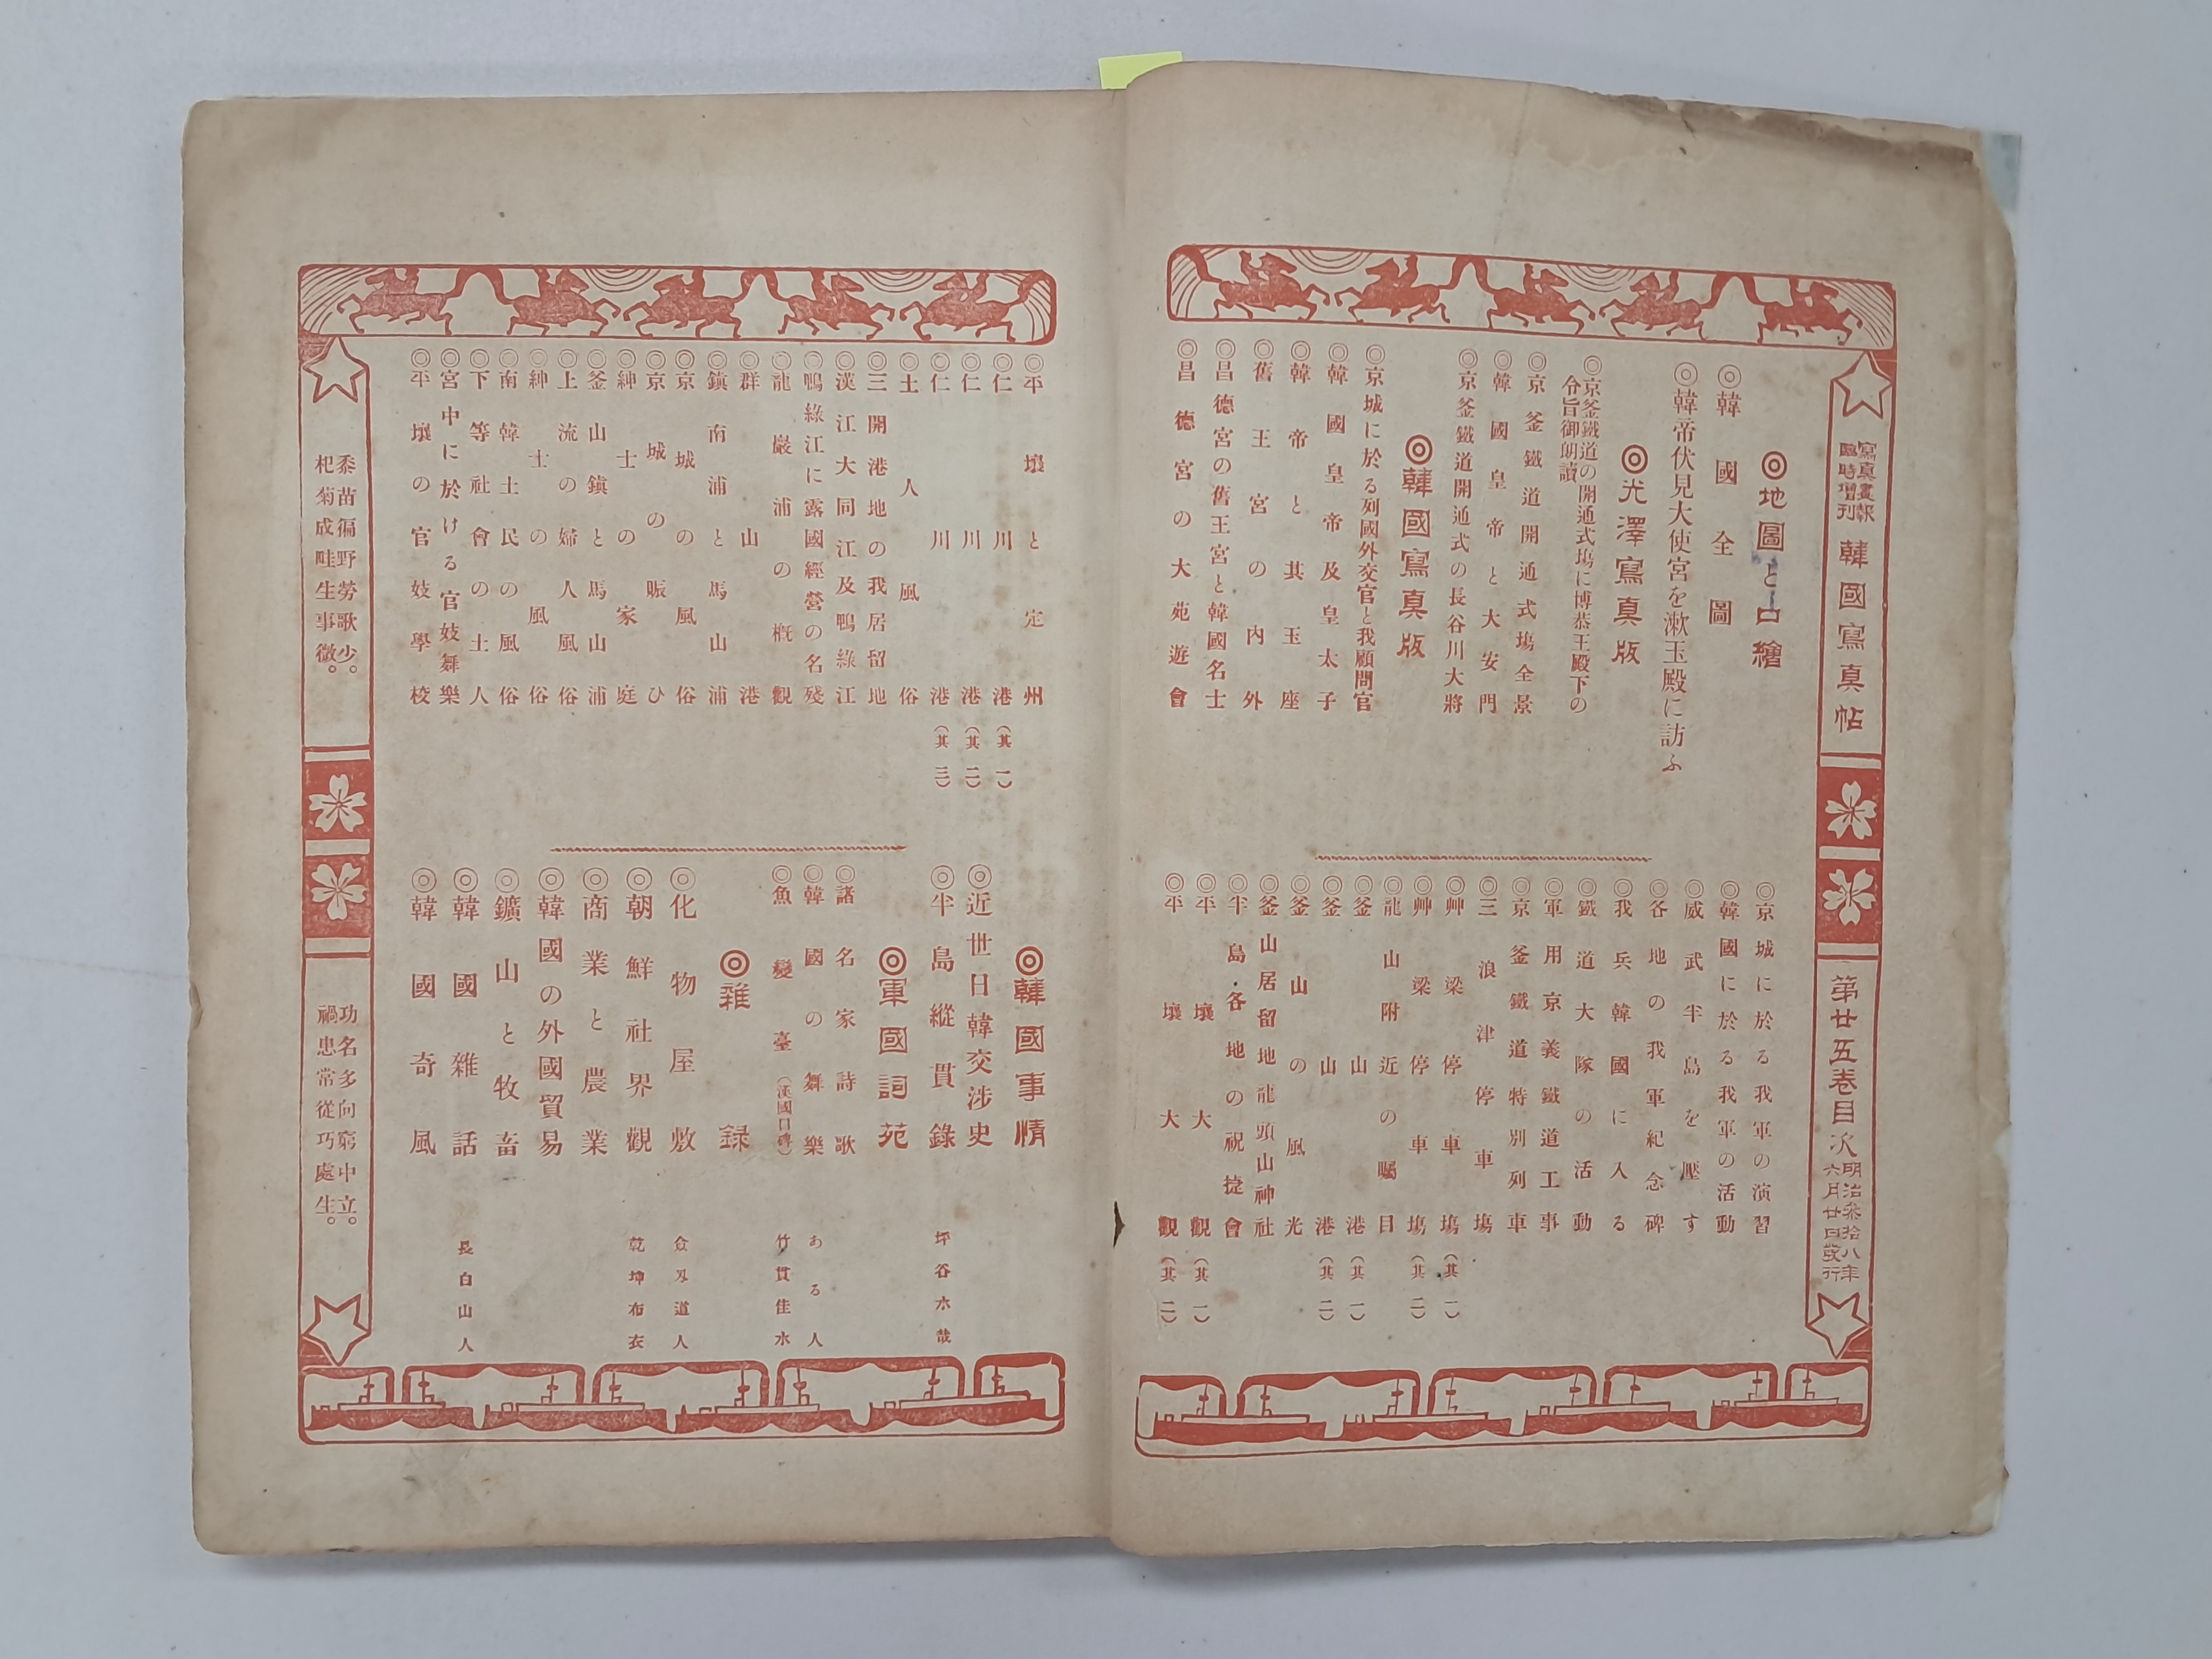 寫真畫報
臨時增刊
韓國寫真帖
第廿五卷目次
明治叅拾八年
六月廿日發行
◎地圖と口繪
◎韓國全圖
◎韓帝伏見大使宮を漱玉殿に訪ふ
◎光澤寫真版
◎京釜鐵道の開通式塲に博恭王殿下の
令旨御朗讀
◎京釜鐵道開通式塲全景
◎韓國皇帝と大安門
◎京釜鐵道開通式の長谷川大將
◎韓國寫真版
◎京城に於る列國外交官と我顧問官
◎韓國皇帝及皇太子
◎韓帝と其玉座
◎舊王宮の內外
◎昌德宮の舊王宮と韓國名士
◎昌德宮の大苑遊會
◎京城に於る我軍の演習
◎韓國に於る我軍の活動
◎威武半島を壓す
◎各地の我軍紀念碑
◎我兵韓國に入る
◎鐵道大隊の活動
◎軍用京義鐵道工事
◎京釜鐵道特別列車
◎三浪津停車塲
◎艸梁停車塲（其一）
◎艸梁停車塲（其二）
◎龍山附近の矚目
◎釜山港（其一）
◎釜山港（其二）
◎釜山の風光
◎釜山居留地龍頭山神社
◎半島各地の祝捷會
◎平壤大觀（其一）
◎平壤大觀（其二）
◎平壤と定州
◎仁川港（其一）
◎仁川港（其二）
◎仁川港（其三）
◎土人風俗
◎三開港地の我居留地
◎漢江大同江及鴨綠江
◎鴨綠江に露國經營の名殘
◎龍巖浦の概觀
◎群山港
◎鎮南浦と馬山浦
◎京城の風俗
◎京城の賑ひ
◎紳士の家庭
◎釜山鎮と馬山浦
◎上流の婦人風俗
◎紳士の風俗
◎南韓土民の風俗
◎下等社會の土人
◎宮中に於ける官妓舞樂
◎平壤の官妓學校
◎韓國事情
◎近世日韓交涉史
◎半島縱貫錄 坪谷水哉
◎軍國詞苑
◎諸名家詩歌
◎韓國の舞樂 ある人
◎魚變臺（漢國口碑） 竹貫佳水
◎雜録
◎化物屋敷 㑒刄道人
◎朝鮮社界觀 乾坤布衣
◎商業と農業
◎韓國の外國貿易
◎鑛山と牧畜
◎韓國雜話 長白山人
◎韓國奇風
黍苗徧野勞歌少。
杞菊成畦生事微。
功名多向窮中立。
禍患常從巧處生。